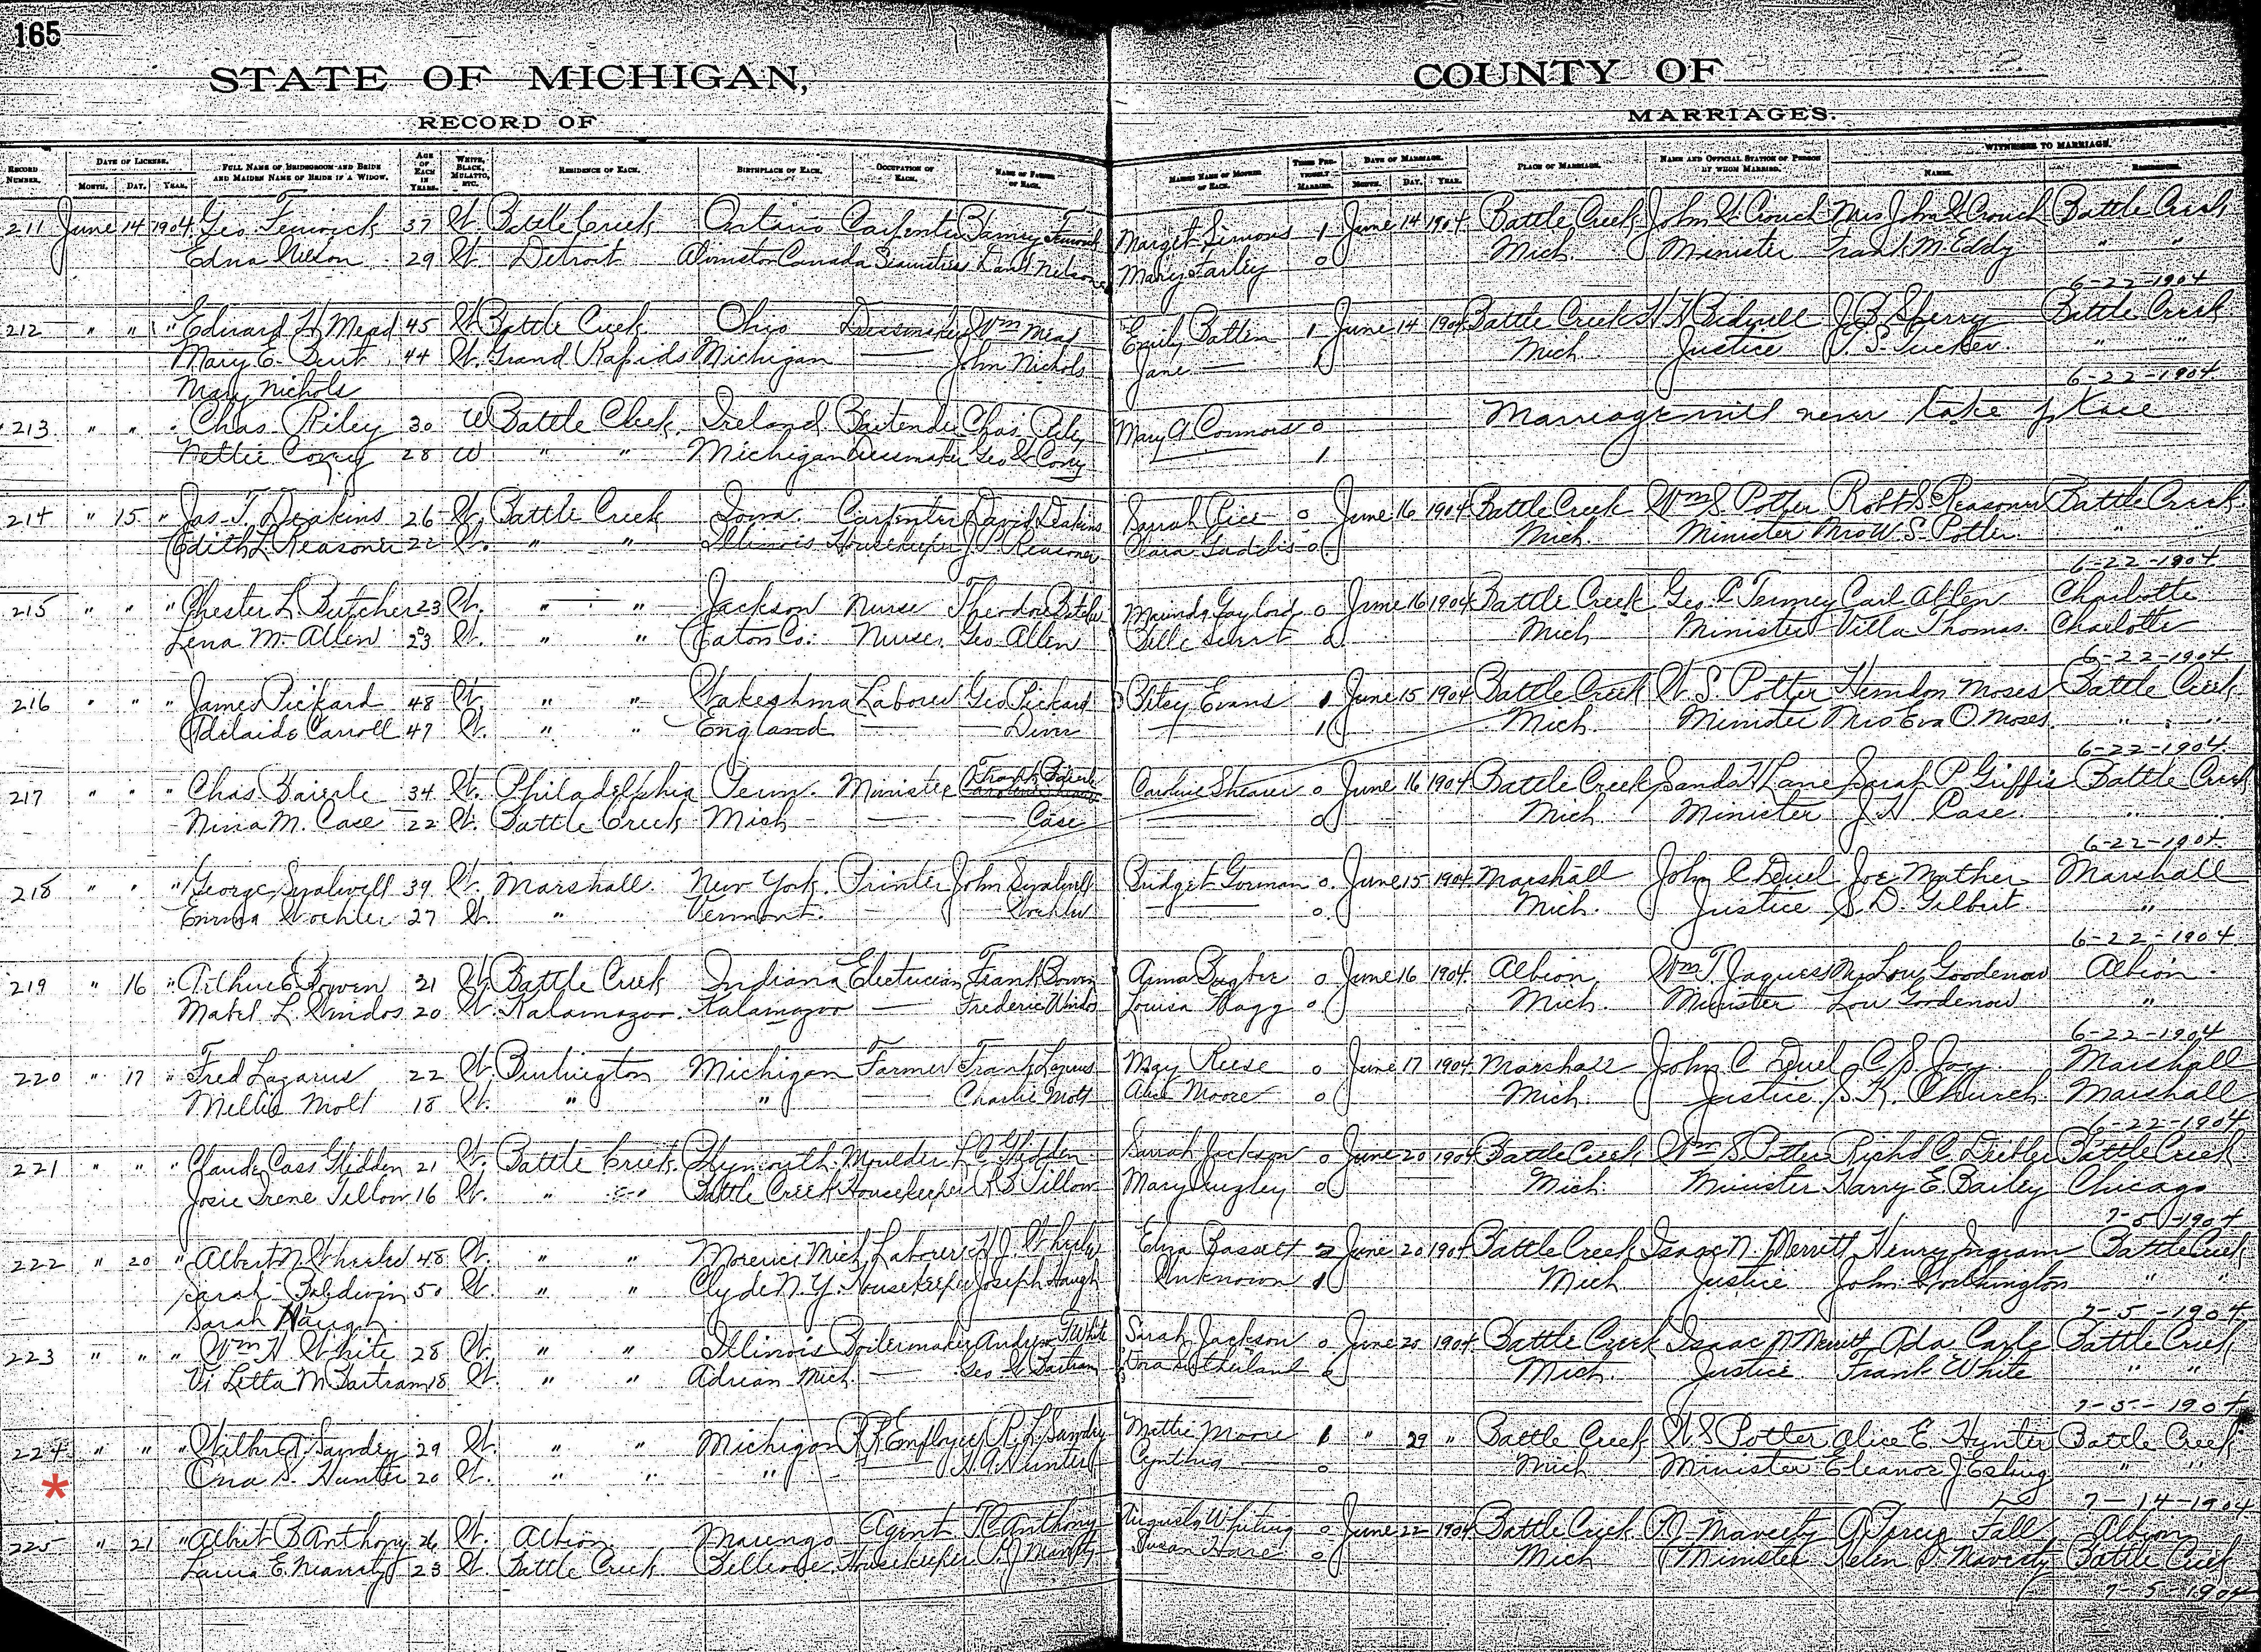 165
STATE OF MICHIGAN, COUNTY OF
RECORD OF MARRIAGES.
RECORD NUMBER. DATE OF LICENSE. MONTH. DAY. YEAR. FULL NAME OF BRIDEGROOM AND BRIDE AND MAIDEN NAME OF BRIDE IF A WIDOW. AGE OF EACH IN YEARS. WHITE, BLACK, MULATTO, ETC. RESIDENCE OF EACH. BIRTHPLACE OF EACH. OCCUPATION OF EACH. NAME OF FATHER OF EACH. MAIDEN NAME OF MOTHER OF EACH. TIMES PREVIOUSLY MARRIED. DATE OF MARRIAGE. MONTH. DAY. YEAR. PLACE OF MARRIAGE. NAME AND OFFICIAL STATION OF PERSON BY WHOM MARRIED. WITNESSES TO MARRIAGE. NAMES. RESIDENCE.
211 June 14 1904 Geo Fenwick 37 W. Battle Creek Ontario Carpenter James Fenwick Marget Simons 1 June 14 1904 Battle Creek John W. Crouch Mrs John W Crouch Battle Creek
Edna Nelson 29 W. Detroit Canada Nelson Mary Farley 0 Mich. Minister Frank M. Eddy " "
6-22-1904
212 " " " Edward H Mead 45 W. Battle Creek Ohio Dressmaker Wm Mead Emily Batten 1 June 14 1904 Battle Creek Bidwell J. B. Sperry Battle Creek
Mary E. 44 W. Grand Rapids Michigan — John Nichols Jane — 1 Mich Justice S. Tucker " "
Mary Nichols 6-22-1904
213 " " " Chas Riley 30 W Battle Creek Ireland Bartender Chas Riley Mary A Connors 0 Marriage will never take place
Nettie Corey 28 W " " Michigan Dressmaker Geo W Corey — 1
214 " 15 " Jas. T. Deakins 26 W. Battle Creek Iowa Carpenter David Deakins Sarah Rice 0 June 16 1904 Battle Creek Wm S. Potter Robt S. Reasoner Battle Creek
Edith L. Reasoner 22 W. " " Illinois Housekeeper J. P. Reasoner Clara Gaddis 0 Mich. Minister Mrs W. S. Potter " "
6-22-1904
215 " " " Chester L. Butcher 23 W. " " Jackson Nurse Theodore Butcher Gaylord 0 June 16 1904 Battle Creek Geo. C Tenney Carl Allen Charlotte
Lena M. Allen 23 W. " " Eaton Co. Nurse Geo Allen Belle 0 Mich Minister Villa Thomas Charlotte
6-22-1904
216 " " " James Pickard 48 W. " " Wakeshma Laborer Geo Pickard Betsy Evans 1 June 15 1904 Battle Creek W. S. Potter Herndon Moses Battle Creek
Adelaide Carroll 47 W. " " England — 1 Mich. Minister Mrs Eva O. Moses " "
6-22-1904
217 " " " Chas Baierle 34 W. Philadelphia Penn. Minister Frank Baierle Caroline Shearer 0 June 16 1904 Battle Creek Sands H Lane Sarah P Griffis Battle Creek
Nina M. Case 22 W. Battle Creek Mich — — Case — 0 Mich. Minister J. H. Case " "
6-22-1904
218 " " " George 39 W. Marshall New York Printer John Bridget Gorman 0 June 15 1904 Marshall John C Deuel Joe Mather Marshall
Emma Wochler 27 W. " Vermont — Wochler — 0 Mich. Justice S. D. Gilbert "
6-22-1904
219 " 16 " Arthur E Bowen 21 W. Battle Creek Indiana Electrician Frank Bowen Anna 0 June 16 1904 Albion Wm T. Jaques Mrs Lou Goodenow Albion
Mabel L. Windos 20 W. Kalamazoo Kalamazoo — Frederic Windos Louisa 0 Mich. Minister Lou Goodenow "
6-22-1904
220 " 17 " Fred Lazarus 22 W. Burlington Michigan Farmer Frank Lazarus May Reese 0 June 17 1904 Marshall John C Deuel C. S. Joy Marshall
Millie Mott 18 W. " " — Charlie Mott Alice Moore 0 Mich. Justice S. K. Church Marshall
6-22-1904
221 " " " Claude Cass Glidden 21 W. Battle Creek Plymouth Moulder L C Glidden Sarah Jackson 0 June 20 1904 Battle Creek Wm S Potter Richd C. Battle Creek
Josie Irene Tillow 16 W. " " Battle Creek Housekeeper R B Tillow Mary 0 Mich. Minister Harry E. Bailey Chicago
7-5-1904
222 " 20 " Albert N 48 W. " " Morenci Mich Laborer H. J. Eliza Bassett 2 June 20 1904 Battle Creek Isaac N. Merritt Henry Ingram Battle Creek
Sarah Baldwin 50 W. " " Clyde N. Y. Housekeeper Joseph Haugh Unknown 1 Mich Justice John Worthington " "
Sarah Haugh 7-5-1904
223 " " " Wm H White 28 W. " " Illinois Boilermaker Andrew J White Sarah Jackson 0 June 20 1904 Battle Creek Isaac N Merritt Ada Carle Battle Creek
Vi Letta M Bartram 18 W. " " Adrian Mich. — Geo W Bartram Sutherland 0 Mich. Justice Frank White " "
7-5-1904
224 " " " Wilber A Sandey 29 W. " " Michigan R R Employee R. L. Sandey Mattie Moore 1 " 29 " Battle Creek W S Potter Alice E. Hunter Battle Creek
Ona S. Hunter 20 W. " " " — Hunter Cynthia — 0 Mich Minister Eleanor J " "
* 7-14-1904
225 " 21 " Albert B Anthony 26 W. Albion Marengo Agent Anthony Augusta Whiting 0 June 22 1904 Battle Creek Maveety Fall Albion
E. Maveety 23 W. Battle Creek Bellevue Housekeeper P. J Maveety Susan Hare 0 Mich Minister Helen Maveety Battle Creek
7-5-1904